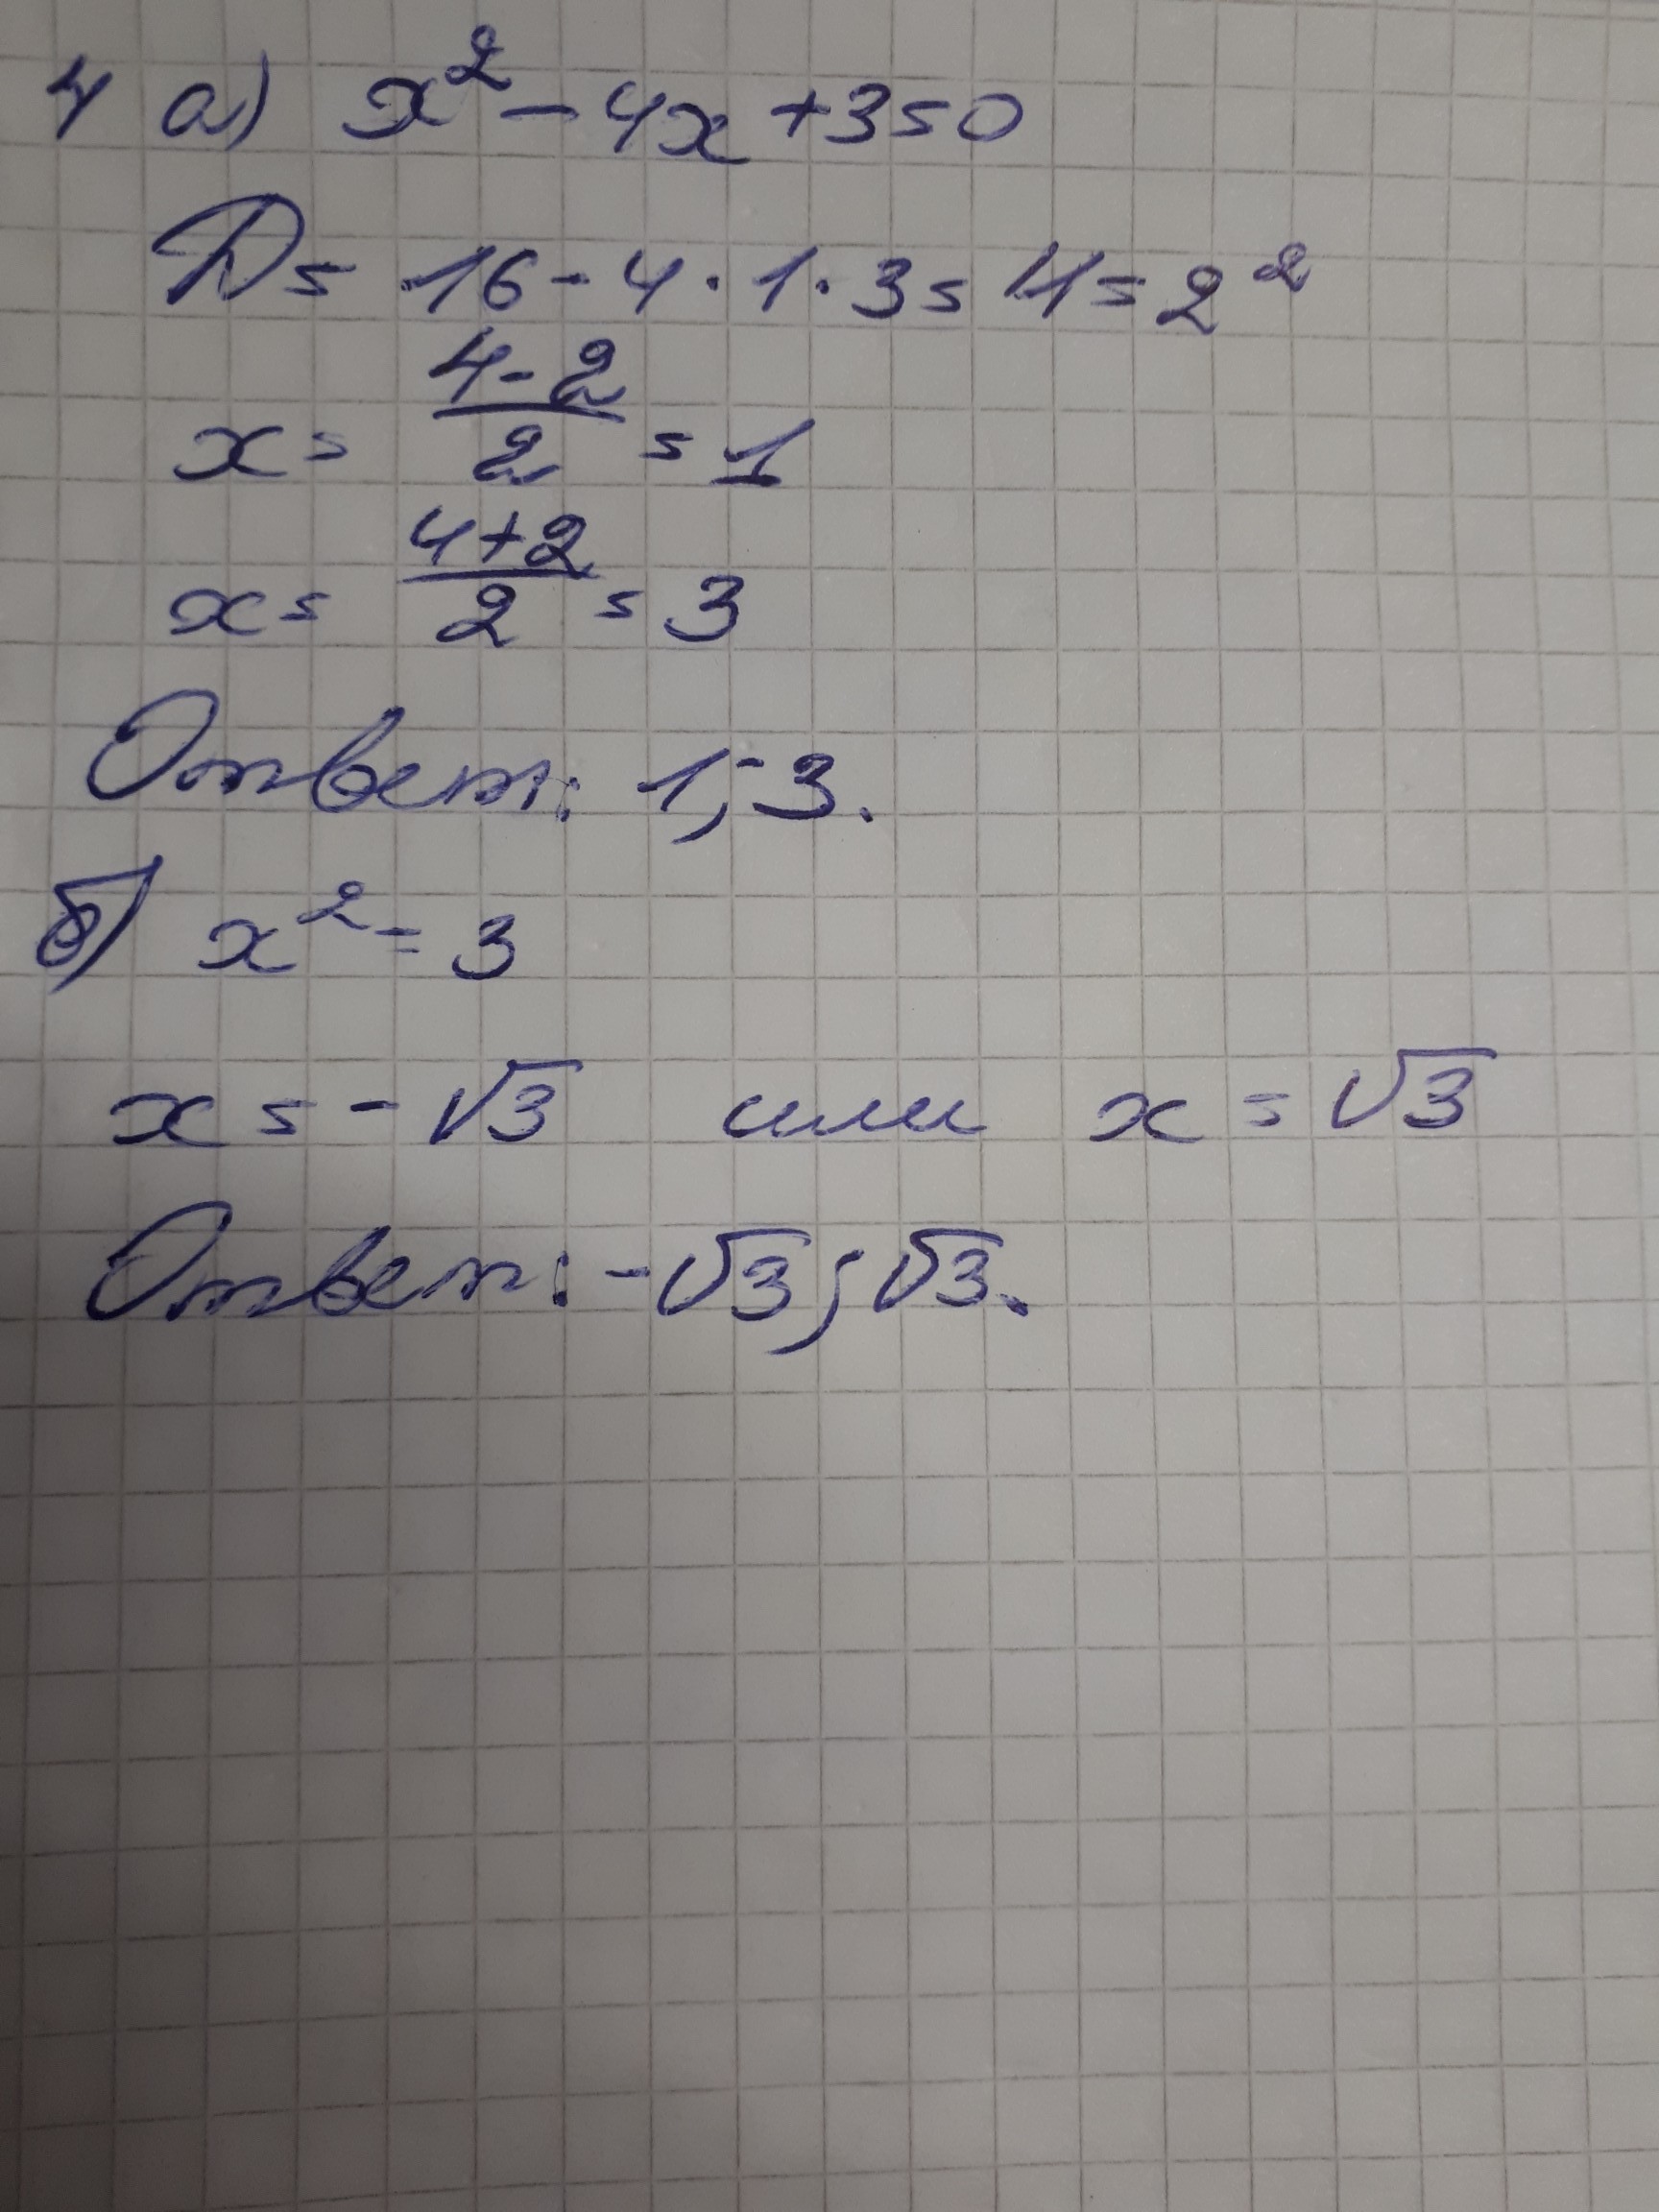 4 а) x² - 4x + 3 = 0
D = 16 - 4 · 1 · 3 = 4 = 2²
x = (4 - 2)/2 = 1
x = (4 + 2)/2 = 3
Ответ: 1; 3.
б) x² = 3
x = -√3 или x = √3
Ответ: -√3; √3.